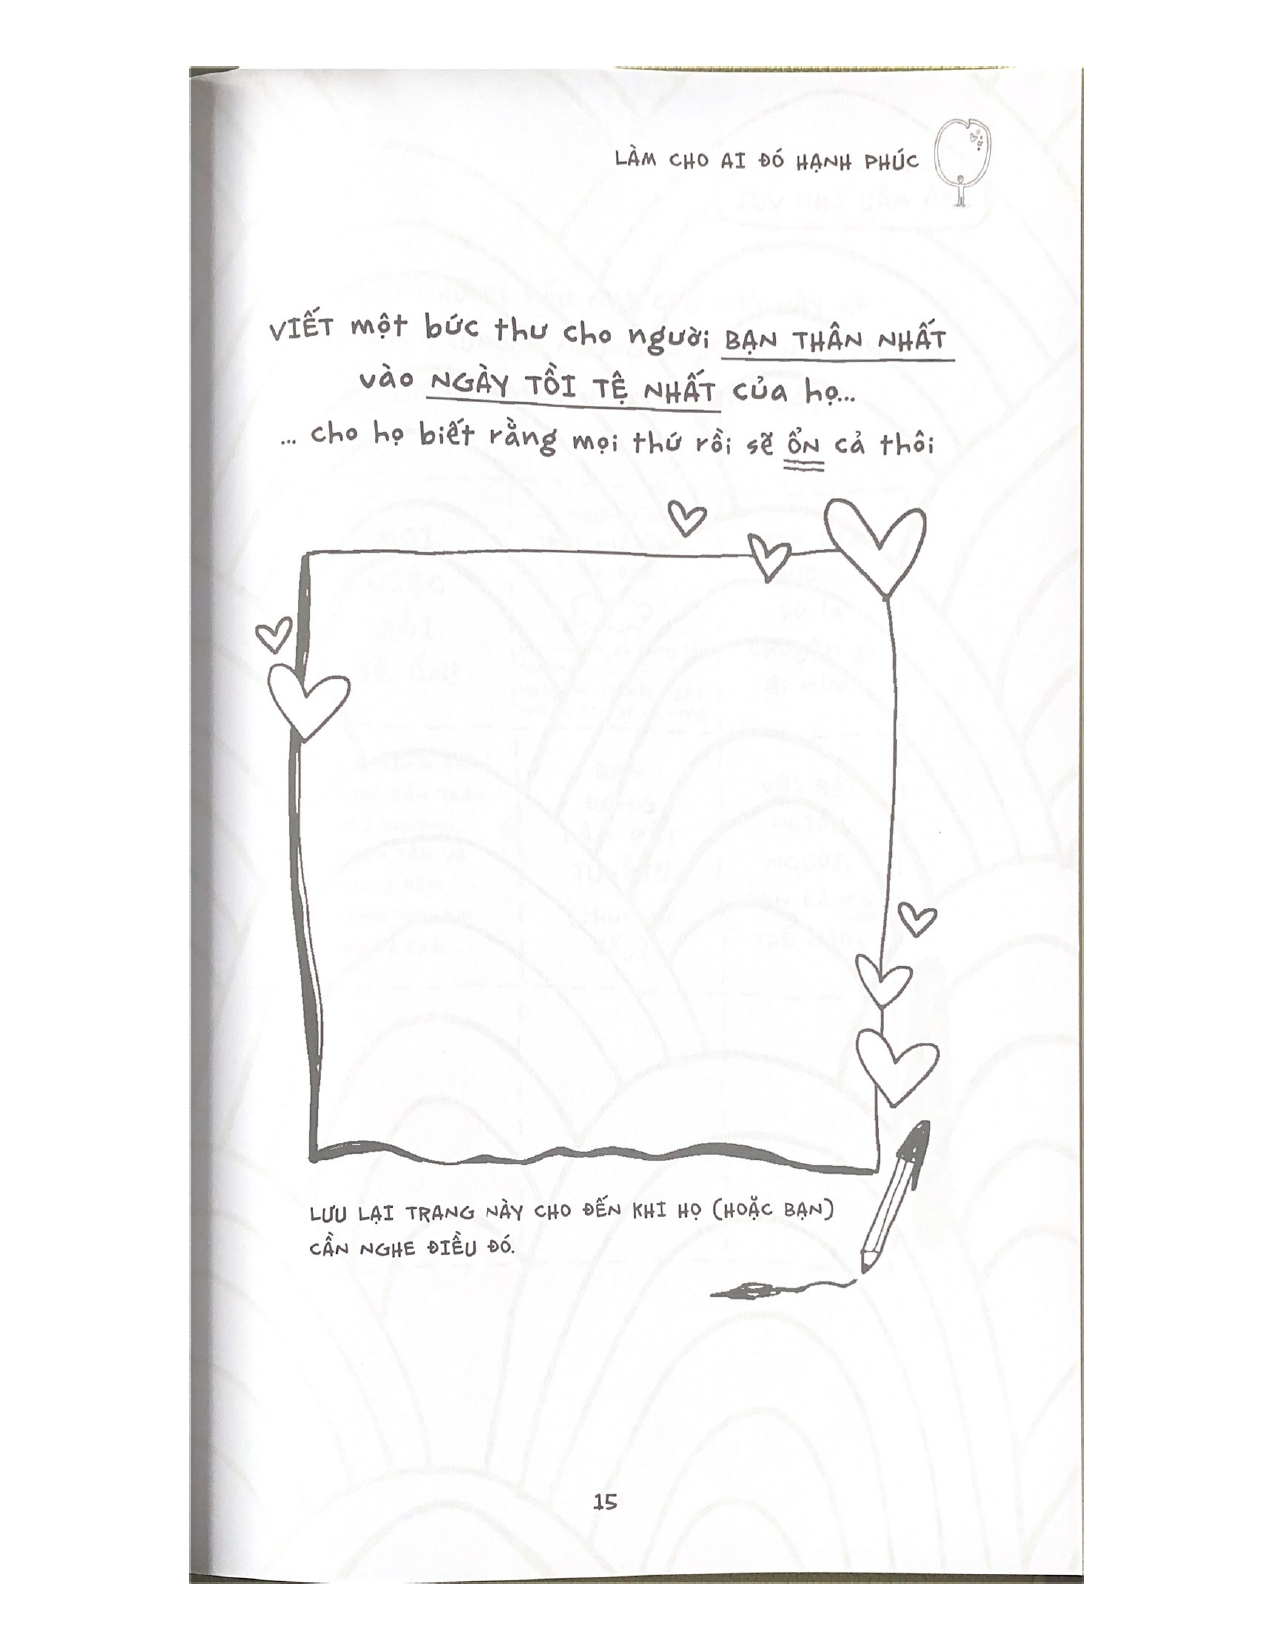 LÀM CHO AI ĐÓ HẠNH PHÚC
VIẾT một bức thư cho người BẠN THÂN NHẤT
vào NGÀY TỒI TỆ NHẤT của họ...
... cho họ biết rằng mọi thứ rồi sẽ ỔN cả thôi
LƯU LẠI TRANG NÀY CHO ĐẾN KHI HỌ (HOẶC BẠN)
CẦN NGHE ĐIỀU ĐÓ.
15